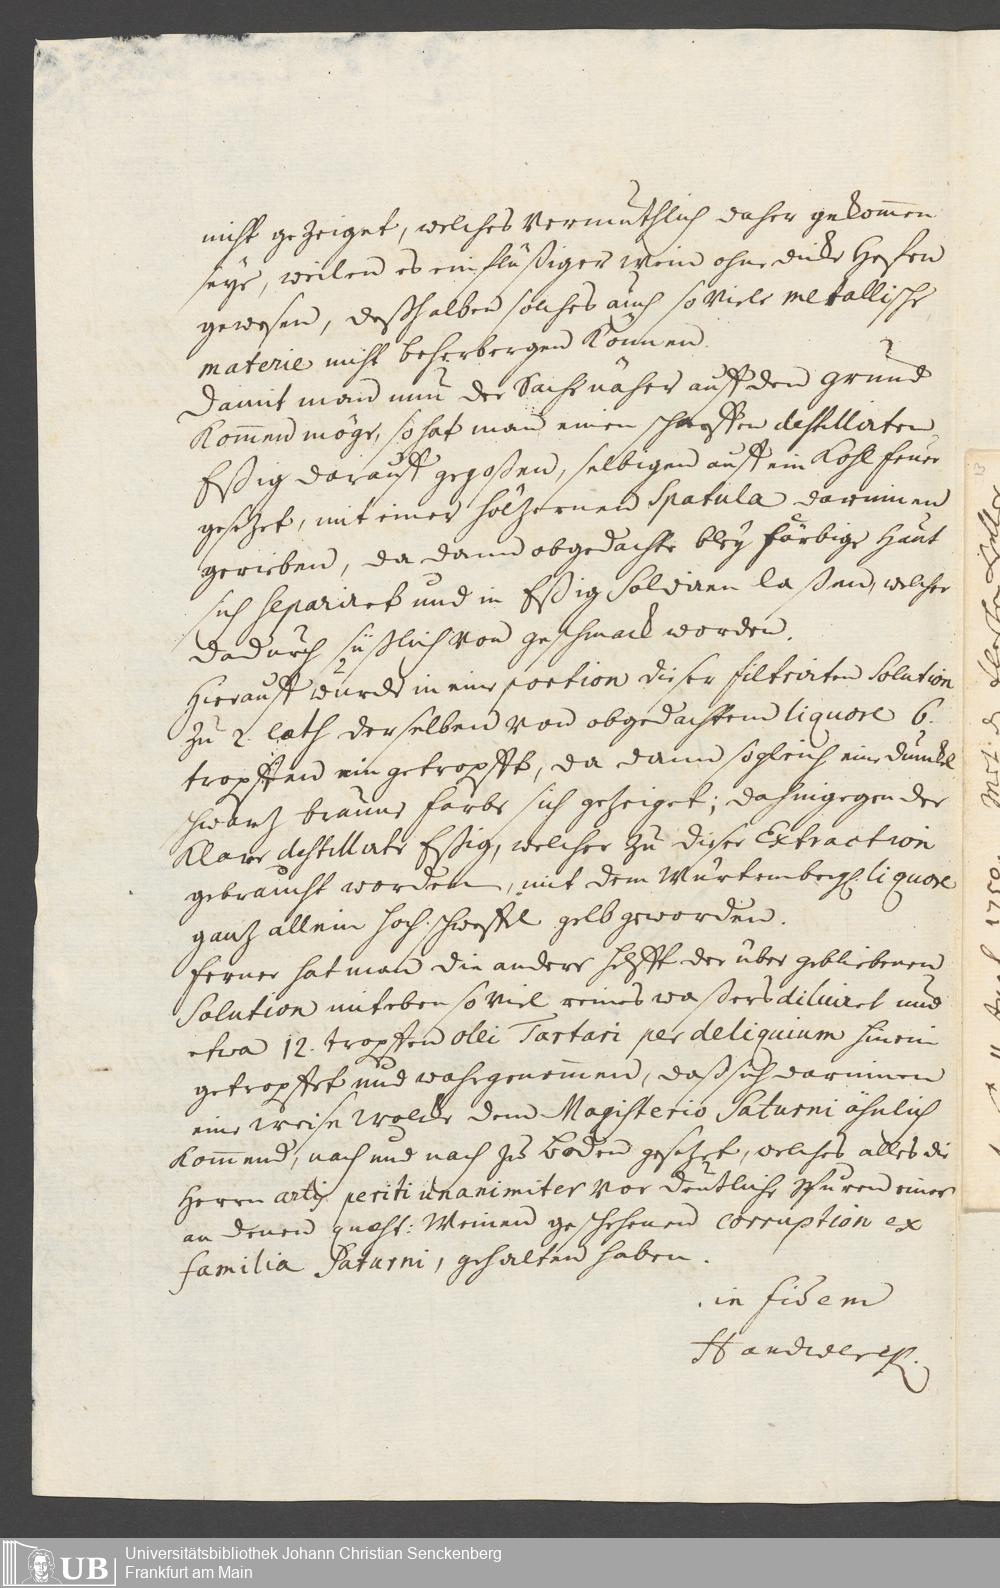 nicht gezeiget, welches vermuthlich daher gekom̅en
seye, weilen es ein flüßiger Wein ohne dicke Hefen
gewesen, deßhalben solches auch so viele metallische
materie nicht beherbergen können.
Damit man nun der Sache näher auff den grund
kom̅en möge, so hat man einen scharffen destillirten
Eßig darauff gegoßen, selbigen auff ein Kohl feuer
gesetzet, mit einer höltzernen Spatula darinnen
gerieben, da dann obgedachte bley färbige Haut
sich separiret und in Eßig solviren laßen, welcher
dadurch süßlich von geschmack worden.
Hierauff wurde in eine portion dieser filtrirten Solution
zu 2. loth derselben von obgedachtem liquore 6.
tropffen eingetropfft, da dann sogleich eine dunckel
schwartz braune farbe sich gezeiget; dahingegen der
klare destillirte Eßig, welcher zu dieser Extraction
gebraucht worden, mit dem Würtembergl. liquore
gantz allein hoch schweffel gelb geworden.
ferner hat man die andere helfft der übergebliebenen
Solution mit eben so viel reines waßers diluiret und
etwa 12. tropffen olei Tartari per deliquium hinein
getropffet und wahrgenom̅en, daß sich darinnen
eine weise wolcke dem Magisterio Saturni ähnlich
kom̅end, nach und nach zu boden gesetzet, welches alles die
Herrn artis periti unanimiter vor deutliche spuren einer
an denen quæst: Weinen geschehenen corruption ex
familia Saturni, gehalten haben.
in fidem
Handwerck.
Universitätsbibliothek Johann Christian Senckenberg
Frankfurt am Main
UB
13
1750.